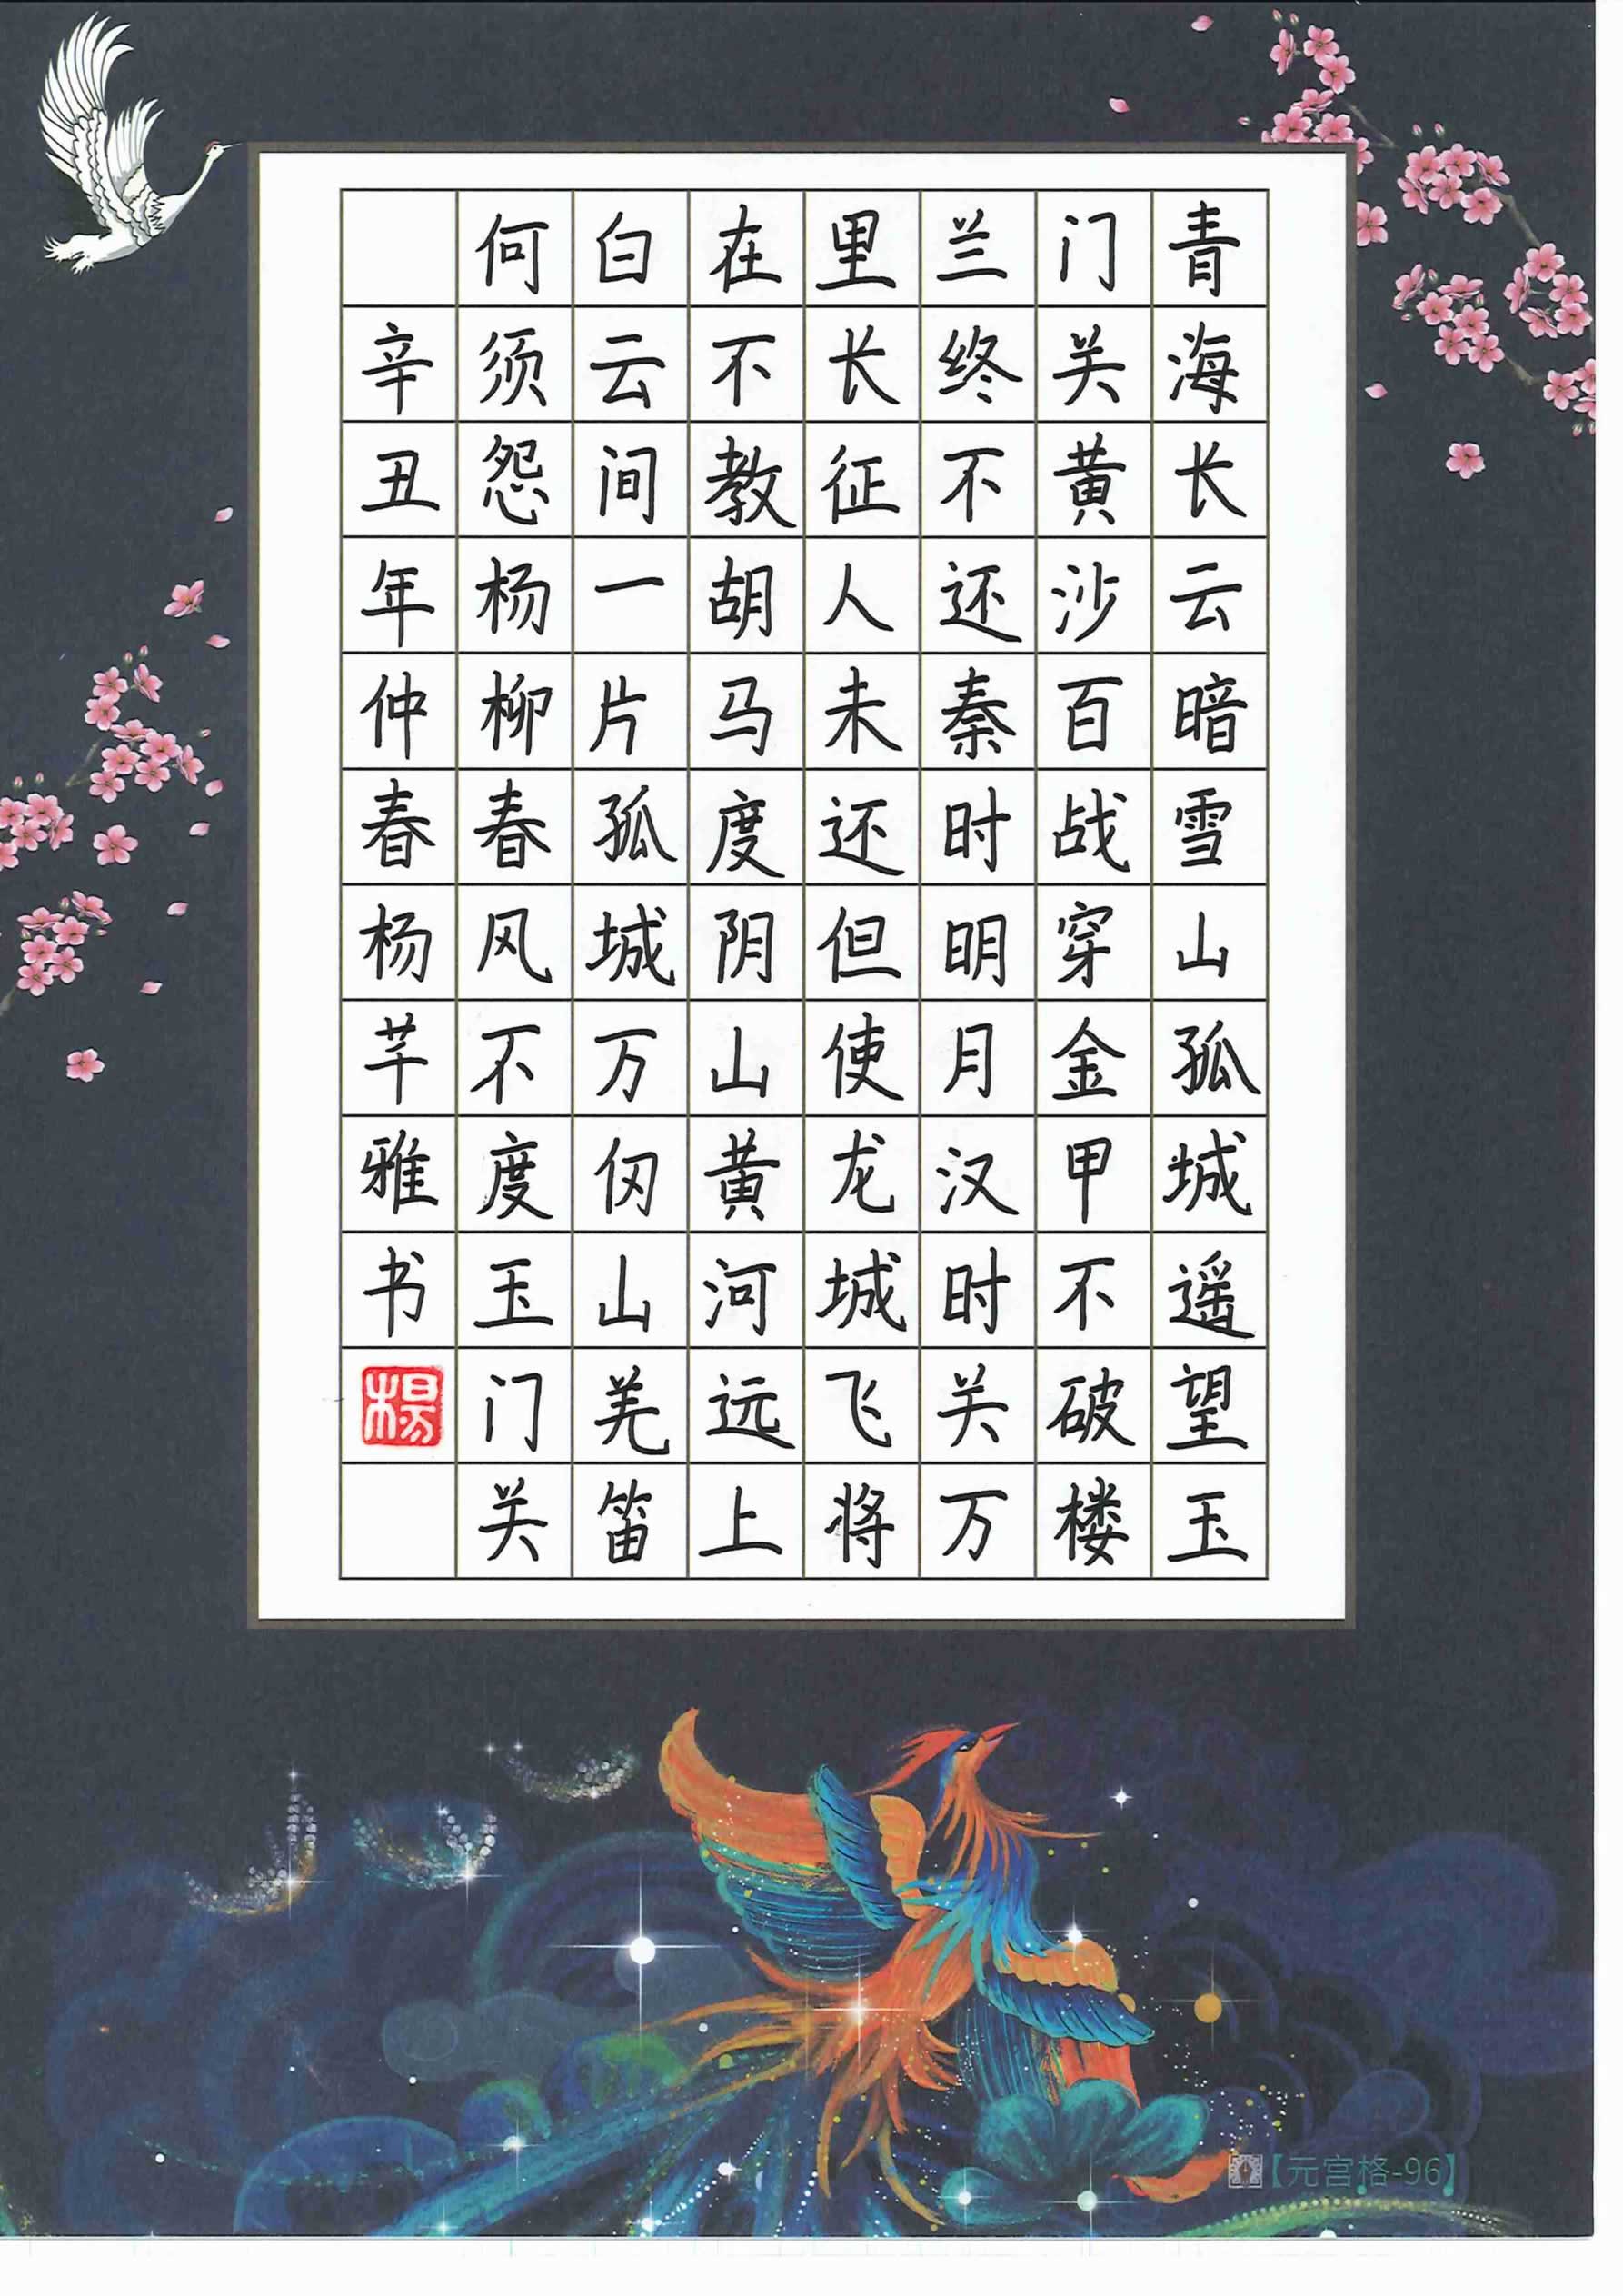 青海长云暗雪山孤城遥望玉
门关黄沙百战穿金甲不破楼
兰终不还秦时明月汉时关万
里长征人未还但使龙城飞将
在不教胡马度阴山黄河远上
白云间一片孤城万仞山羌笛
何须怨杨柳春风不度玉门关
辛丑年仲春杨芊雅书
楊
【元宫格-96】